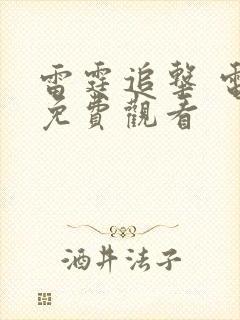 雷霆追擊 電
免費觀看
酒井法子